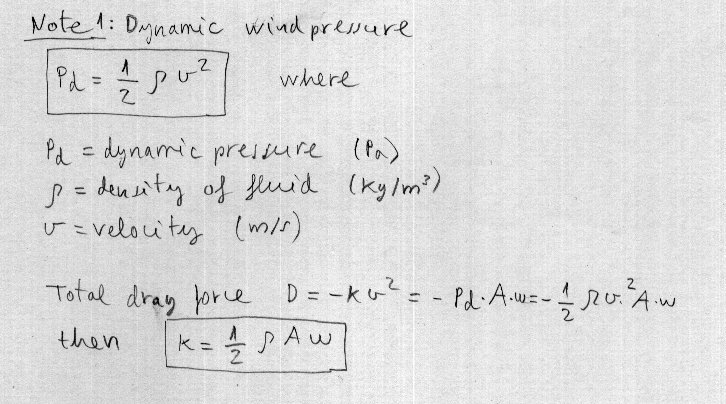 Note 1: Dynamic wind pressure
Pd = 1/2 ρ v² where
Pd = dynamic pressure (Pa)
ρ = density of fluid (kg/m³)
v = velocity (m/s)
Total drag force D = -K v² = - Pd·A·w = - 1/2 ρ v.² A·w
then K = 1/2 ρ A w